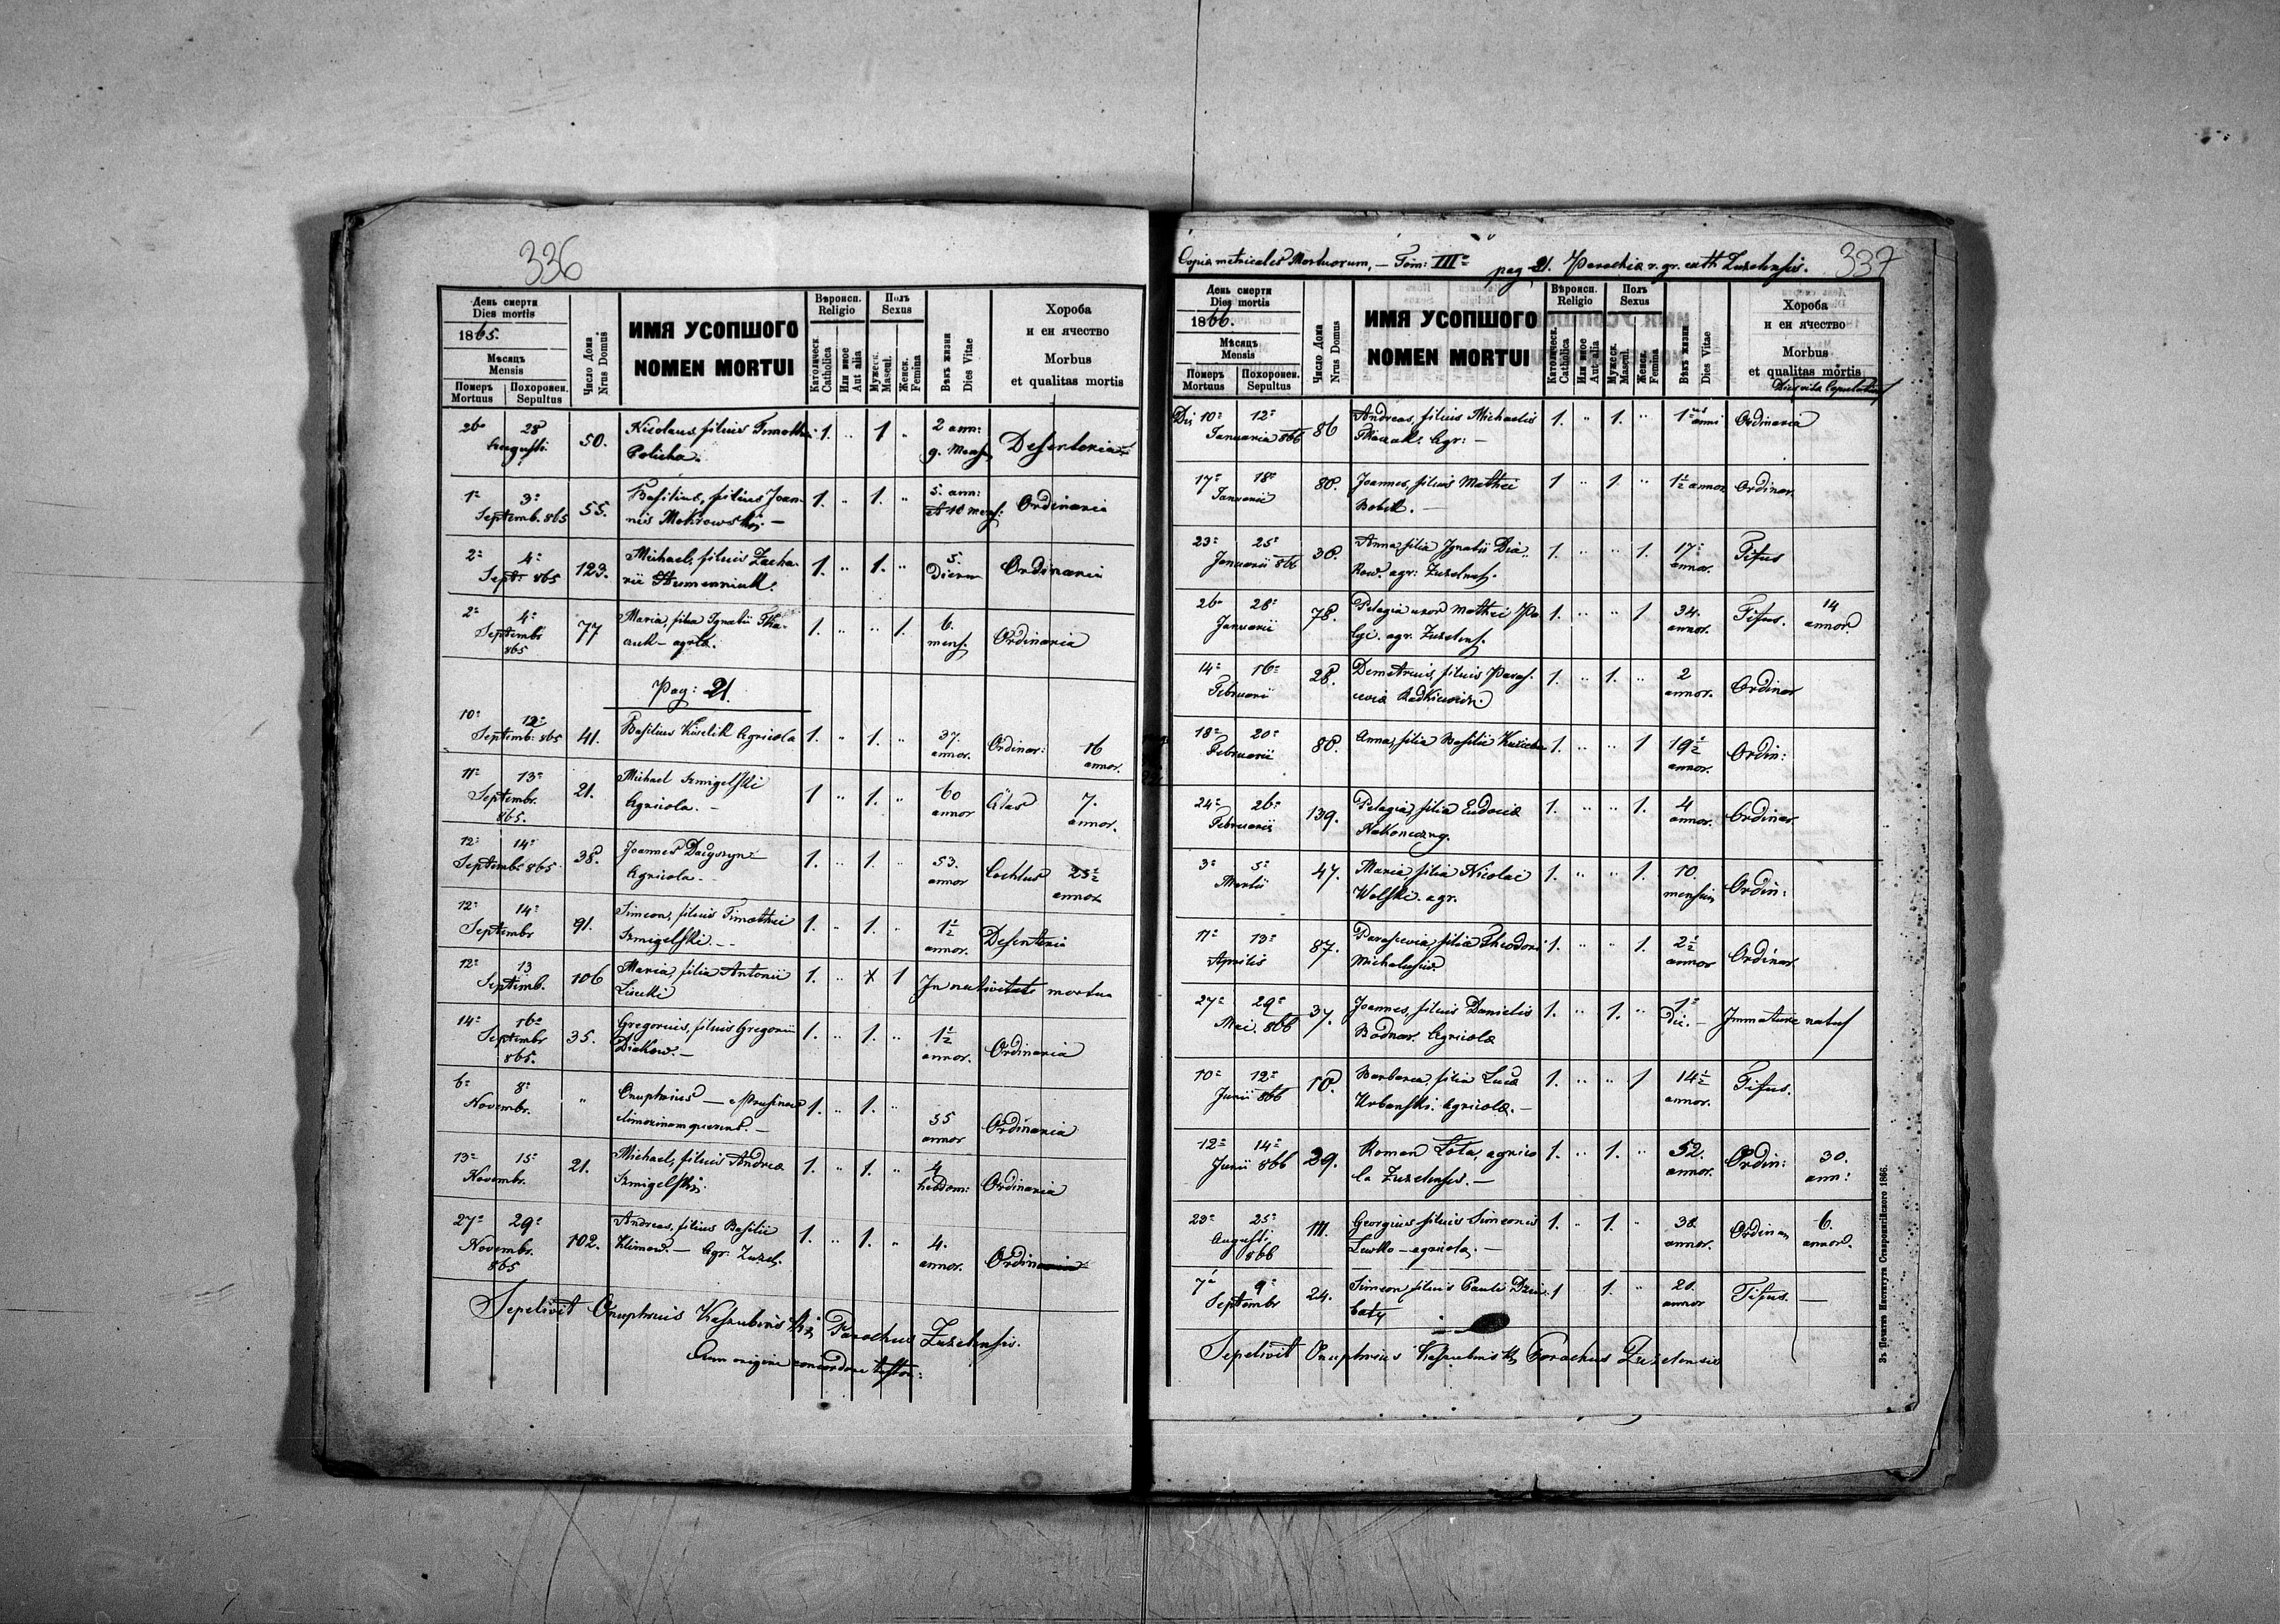 336
День смерти
Dies mortis
1865.
Мѣсяць
Mensis
Померъ
Mortuus
Похоронен.
Sepultus
Число Дома
Nrus Domus
ИМЯ УСОПШОГО
NOMEN MORTUI
Вѣроисп.
Religio
Католическ.
Catholica
Или иное
Aut alia
Полъ
Sexus
Мужеск.
Mascul.
Женск.
Femina
Вѣкъ жизни
Dies Vitae
Хороба
и еи ячество
Morbus
et qualitas mortis
26 28 Augusti 50. Nicolaus, filius Timothei 1. " 1 " 2 ann:
9. Mens.
1 3 Septemb. 865 55. Basilius, filius Joan-
nis Mokrowski. — 1. " 1. " 5. ann:
et 10 mens: Ordinaria
2 4 Septr 865 123. Michael, filius Zacha-
rii 1. " 1. " 5.
Dierum Ordinaria
2 4 Septembr 865 77 Maria, filia Ignatii Tka-
czuk — agrlae. 1. " " 1. 6.
mens. Ordinaria
Pag: 21.
10 12 Septemb: 865 41. Basilius Agricola 1. " 1. " 37.
annor. Ordinar: 16
annor.
11 13 Septembr. 865. 21. Michael Szmigelski
Agricola. — 1 " 1. " 60
annor 7.
annor.
12 14 Septembr 865 38. Joannes
Agricola — 1. " 1. " 53.
annor 23½
annor
12 14 Septembr 91. Simeon, filius Timothei
Szmigelski. — 1. " 1. " 1½
annor. Desenteria
12 13 Septemb. 106 Maria, filia Antonii
1. " 1 In nativitate mortua
14 16 Septembr 865. 35. Gregorius, filius Gregorii
Diakow. — 1. " 1. " 1½
annor. Ordinaria
6 8 Novembr. " Onuphrius —
1. " 1. " 55
annor Ordinaria
13 15 Novembr. 21. Michael, filius Andreae
Szmigelski. 1. " 1. " 4
hebdom: Ordinaria
27 29 Novembr. 865 102. Andreas, filius Basilii
Klimow. — Agr. Zuzel. 1. " 1. " 4.
annor. Ordinaria
Sepelivit Onuphrius Parochus Zuzelensis.
Cum origine concordare testor:
Copia metricales Mortuorum, — Tom: III pag 21. Parochiae r. gr. cath Zuzelensis.
337
День смерти
Dies mortis
1866.
Мѣсяць
Mensis
Померъ
Mortuus
Похоронен.
Sepultus
Число Дома
Nrus Domus
ИМЯ УСОПШОГО
NOMEN MORTUI
Вѣроисп.
Religio
Католическ.
Catholica
Или иное
Aut alia
Полъ
Sexus
Мужеск.
Mascul.
Женск.
Femina
Вѣкъ жизни
Dies Vitae
Хороба
и еи ячество
Morbus
et qualitas mortis
Die 10 12 Januaria 866 86 Andreas, filius Michaelis
Tkaczuk. Agr: — 1. " 1. " 1
anni Ordinaria
17 18 Januarii 80. Joannes, filius Mathei
1 " 1 " 1½ annor Ordinar.
23 25 Januarii 866 36. Anna, filia Ignatii Dia-
kow. agr: Zuzelens. 1. " " 1. 17
annor. Tifus
26 28 Januarii 78. Pelagia uxor Mathei
agr. Zuzelens. 1. " " 1 34.
annor. Tifus. 14
annor.
14 16 Februarii 28. Demetrius, filius Paras-
ceviae Radkiewicz. 1. " 1. " 2
annor. Ordinar
18 20 Februarii 80. Anna, filia Basilii 1. " " 1 19½
annor. Ordin:
24 26 Februarii 139. Pelagia, filia Eudociae
Nakoneczny. 1. " " 1. 4
annor. Ordinar
3 5 Martii 47. Maria filia Nicolai
Wolski. agr. 1. " " 1. 10.
mensium Ordin:
11 13 Aprilis 87. Parascevia, filia Theodori
1. " " 1. 2½
annor Ordinar
27 29 Mai. 866 37. Joannes, filius Danielis
Bodnar. Agricolae 1. " 1. " 1
Die. — Immature natus
10 12 Junii 866 10. Barbara, filia Lucae
Urbanski. Agricolae. — 1. " " 1 14½
annor. Tifus.
12 14 Junii 866 29. Roman Lota, agrico
la Zuzelensis. — 1. " 1. " 52.
annor. Ordin: 30.
ann:
23 25 Augusti 866 111. Georgius filius Simeonis
Lewko — agricola. — 1. " 1. " 38.
annor. Ordinar 6.
annor.
7 9 Septembr 24. Simeon, filius Pauli Dziu-
baty 1 " 1. " 21.
annor Tifus. —
Sepelivit Onuphrius Parochus Zuzelensis
Зъ Печатнѣ Института Ставропигійского 1866.